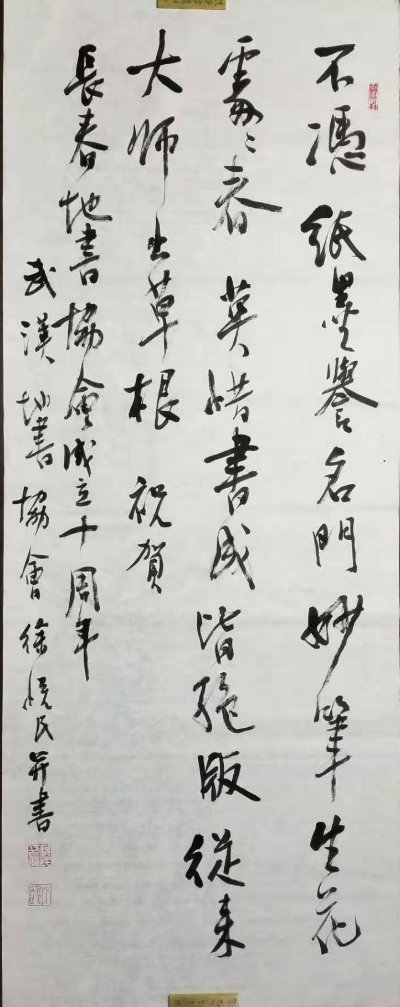 不憑紙墨譽名門妙筆生花
處〻春莫惜書成皆絕版從来
大师出草根祝賀
長春地書協會成立十周年
武漢地書協會徐民并書